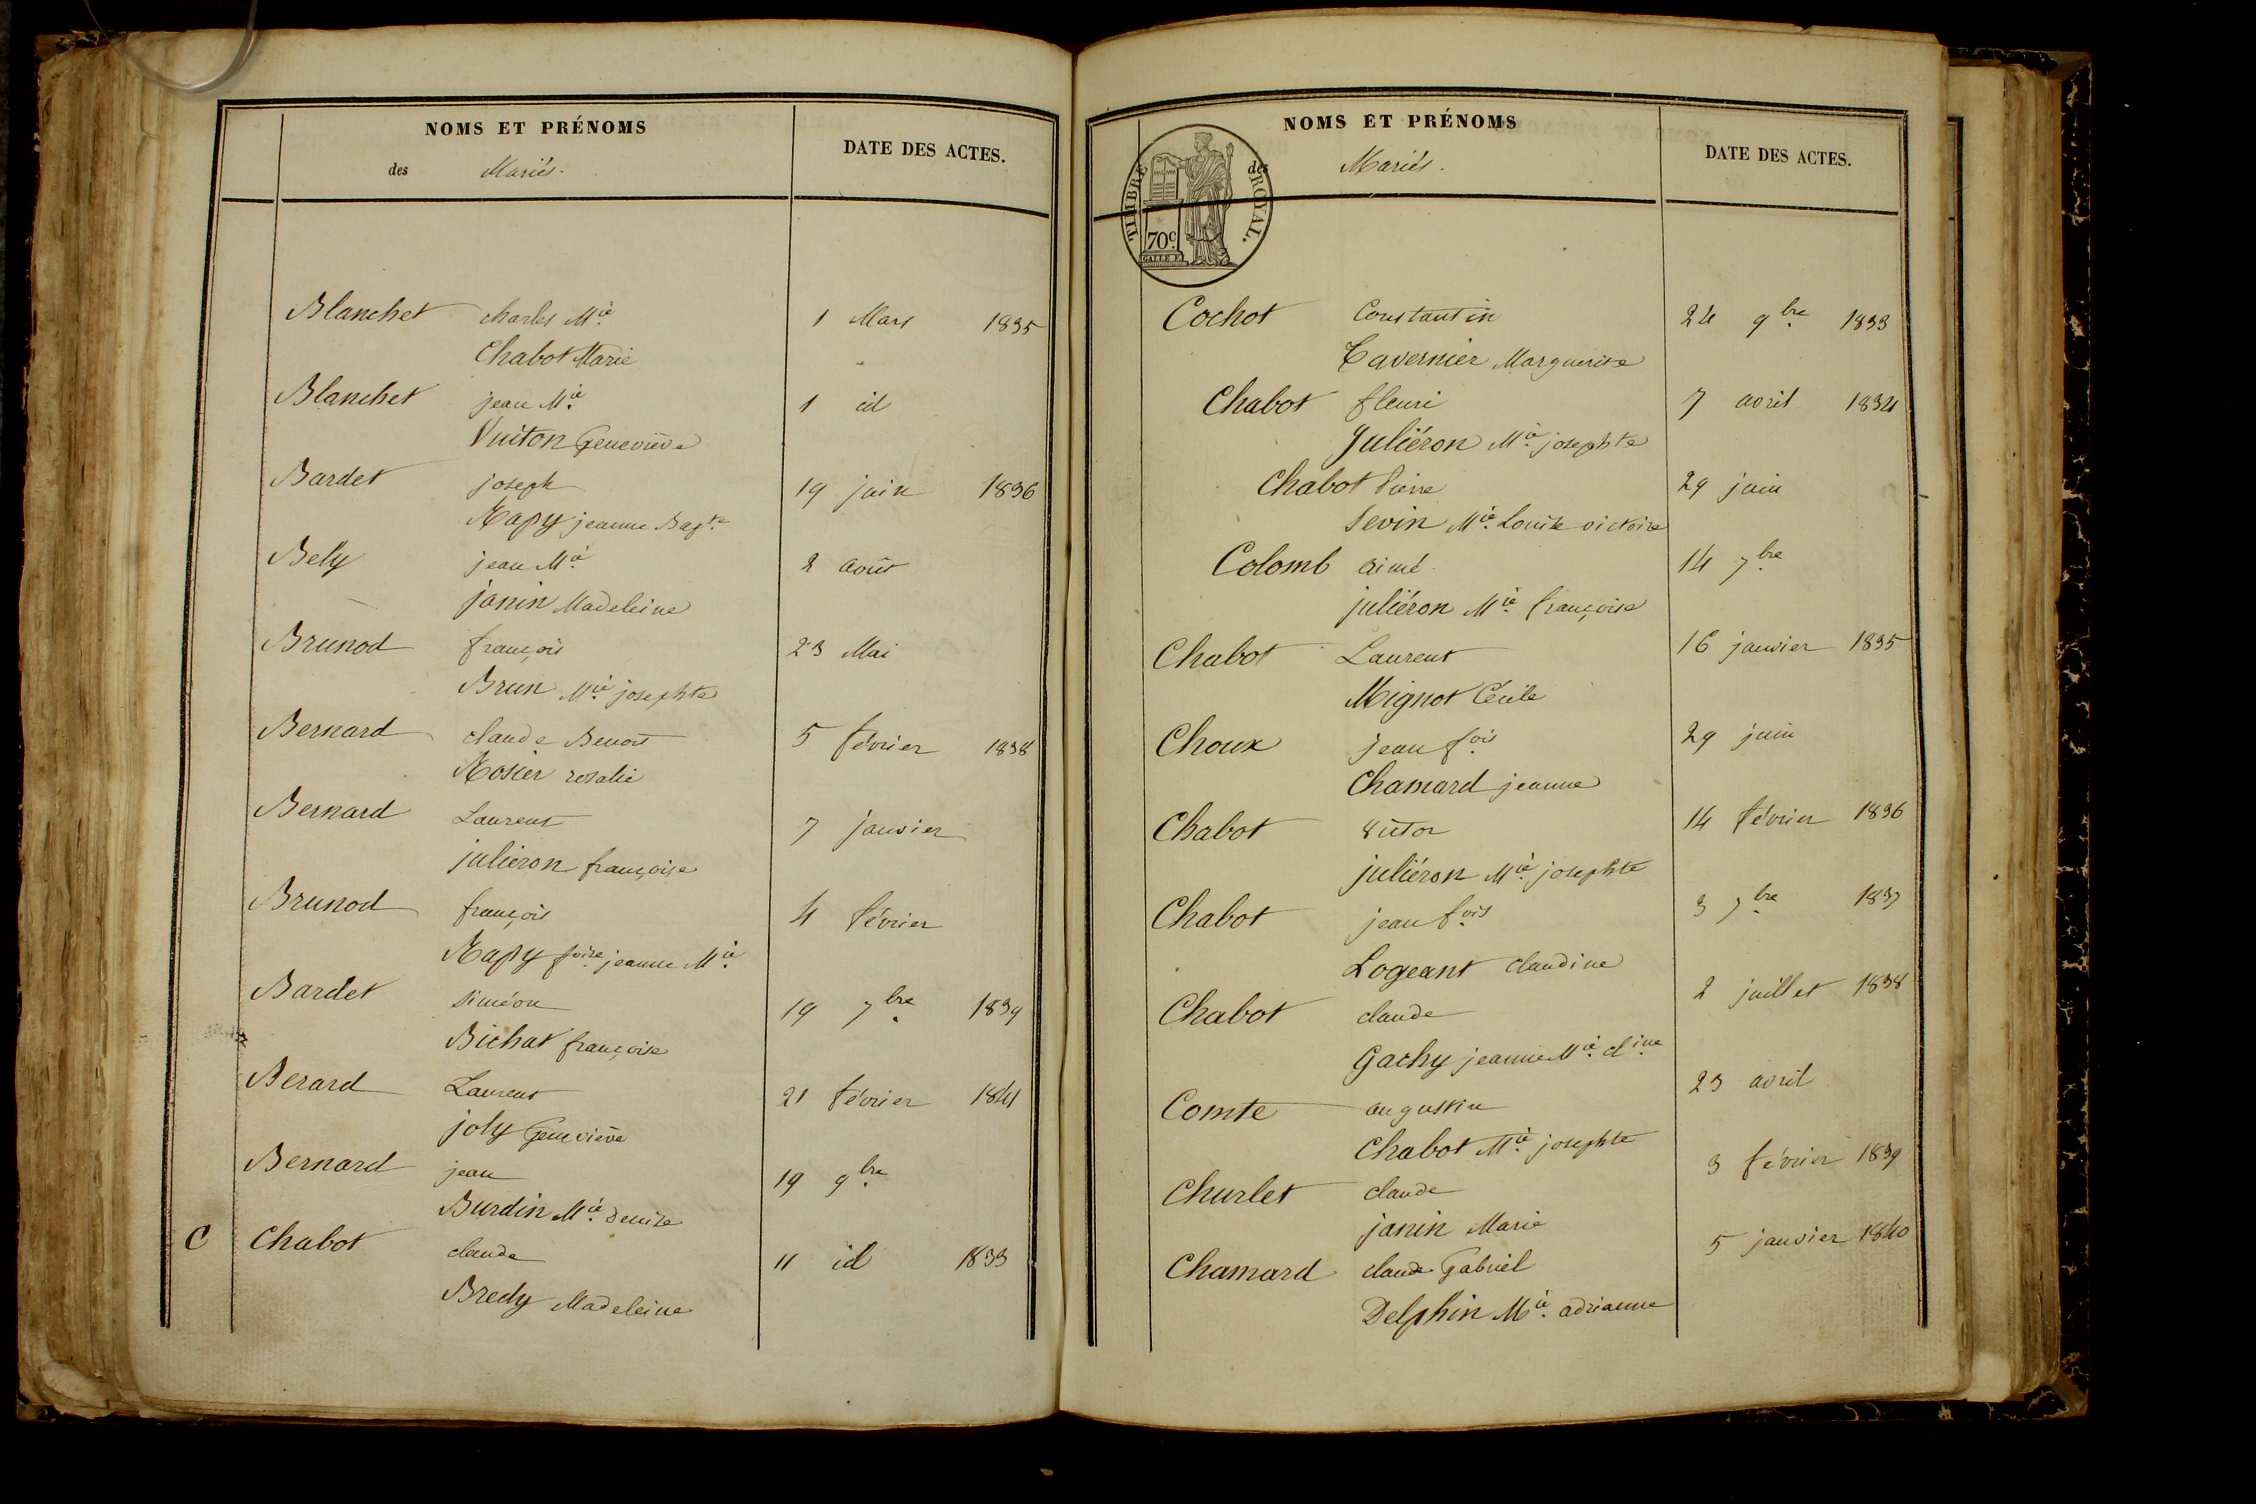 NOMS ET PRÉNOMS
des Mariés.
DATE DES ACTES.
Blanchet charles Mie 1 Mars 1835
Chabot Marie
Blanchet jean Mie 1 id
Vuiton Geneviève
Bardet joseph 19 juin 1836
Rapy jeanne Bapte
Bely jean Mie 2 août
janin Madeleine
Brunod françois 23 Mai
Brun Mie josephte
Bernard claude Benoit 5 février 1838
Rosier rosalie
Bernard Laurent 7 janvier
juliéron françoise
Brunod françois 4 février
Rapy foise jeanne Mie
Bardet Siméon 19 7bre 1839
Bichat françoise
Berard Laurent 21 février 1841
joly Geneviève
Bernard jean 19 9bre
Burdin Mie Denise
C Chabot claude 11 id 1833
Bredy Madeleine
NOMS ET PRÉNOMS
des Mariés.
DATE DES ACTES.
TIMBRE ROYAL.
70c
GALLE F.
Cochot Constantin 24 9bre 1833
Tavernier Marguerite
Chabot fleuri 7 avril 1834
Juliéron Mie josephte
Chabot Pierre 29 juin
Sevin Mie Louise victoire
Colomb aimé 14 7bre
juliéron Mie françoise
Chabot Laurent 16 janvier 1835
Mignot Cécile
Choux jean fois 29 juin
Chamard jeanne
Chabot victor 14 février 1836
juliéron Mie josephte
Chabot jean fois 3 7bre 1837
Logeant claudine
Chabot claude 2 juillet 1838
Gachy jeanne Mie cline
Comte augustin 23 avril
Chabot Mie josephte
Churlet claude 3 février 1839
janin Marie
Chamard claude Gabriel 5 janvier 1840
Delphin Mie adrianne